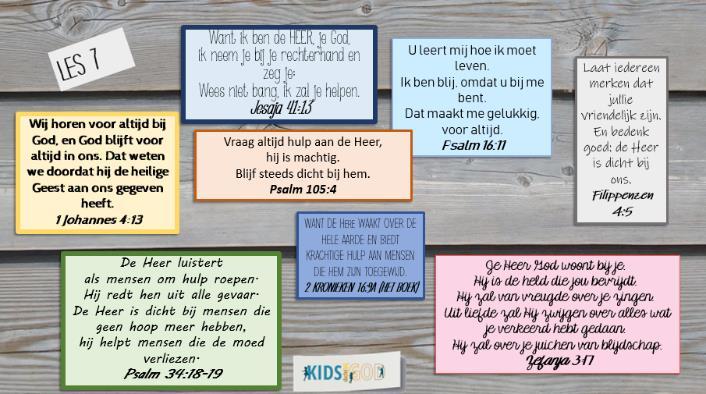 LES 7
Want ik ben de HEER, je God,
ik neem je bij je rechterhand en
zeg je:
Wees niet bang, ik zal je helpen.
Jesaja 41:13
U leert mij hoe ik moet
leven.
Ik ben blij, omdat u bij me
bent.
Dat maakt me gelukkig,
voor altijd.
Psalm 16:11
Laat iedereen
merken dat
jullie
vriendelijk zijn.
En bedenk
goed: de Heer
is dicht bij
ons.
Filippenzen
4:5
Wij horen voor altijd bij
God, en God blijft voor
altijd in ons. Dat weten
we doordat hij de heilige
Geest aan ons gegeven
heeft.
1 Johannes 4:13
Vraag altijd hulp aan de Heer,
hij is machtig.
Blijf steeds dicht bij hem.
Psalm 105:4
WANT DE HERE WAAKT OVER DE
HELE AARDE EN BIEDT
KRACHTIGE HULP AAN MENSEN
DIE HEM ZIJN TOEGEWIJD.
2 KRONIEKEN 16:9A (HET BOEK)
De Heer luistert
als mensen om hulp roepen.
Hij redt hen uit alle gevaar.
De Heer is dicht bij mensen die
geen hoop meer hebben,
hij helpt mensen die de moed
verliezen.
Psalm 34:18-19
Je Heer God woont bij je.
Hij is de held die jou bevrijdt.
Hij zal van vreugde over je zingen.
Uit liefde zal Hij zwijgen over alles wat
je verkeerd hebt gedaan.
Hij zal over je juichen van blijdschap.
Zefanja 3:17
KIDS GOD